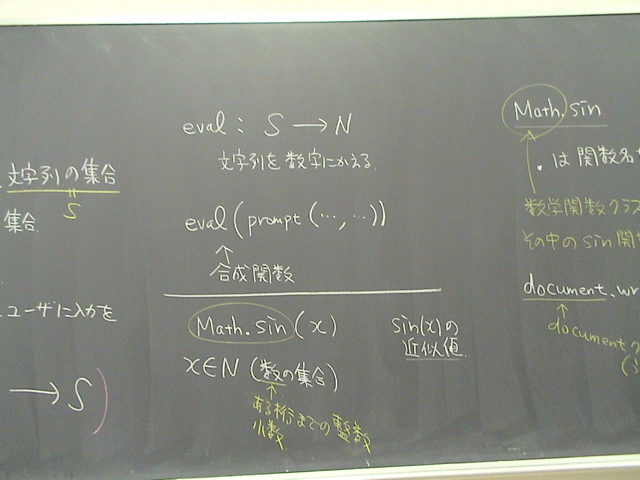 文字列の集合
S
集合
ユーザに入力を
→ S)
eval : S → N
文字列を数字にかえる.
eval(prompt(…, …))
↑
合成関数
Math.sin(x)
sin(x)の
近似値.
x∈N (数の集合)
↑
ある桁までの整数
小数
Math.sin
. は関数名
数学関数クラス
その中のsin関
document.wr
↑
documentの